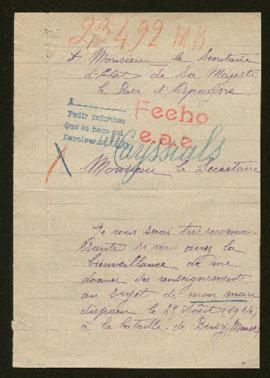 23492
Monsieur le Secretaire
d'Etat de Sa Majesté
le Roi d'Espagne
A
Pedir informes
Fecho
e.a.e.
Monsieur le Secretaire
Je vous serai très reconnai
ssante si vous avez la
bienveillance de me
donner des renseignement
au sujet de mon mari
disparu le 29 Août 1914
à la bataille de